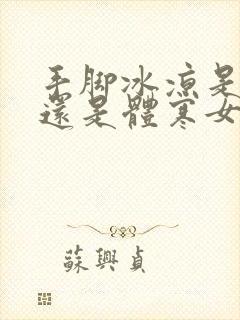 手脚冰凉是
還是體寒女
蘇興貞